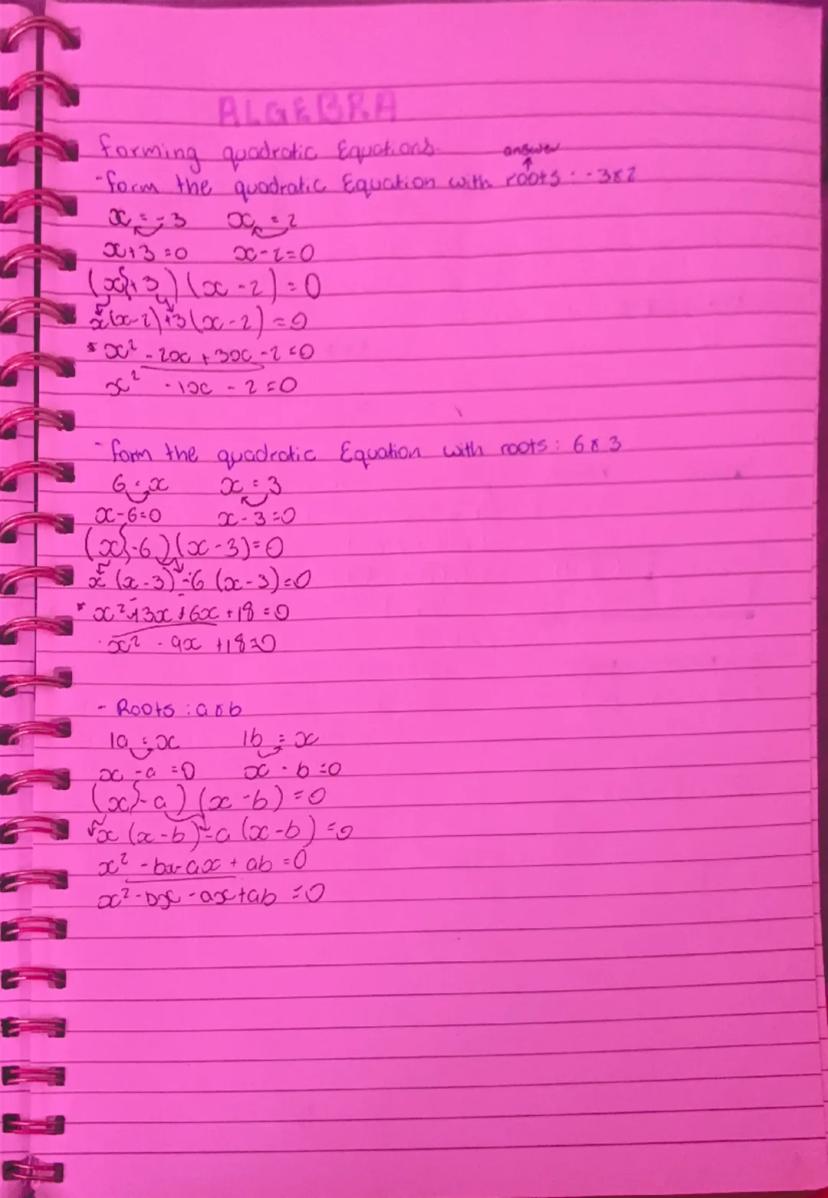 ALGEBRA
forming quadratic Equations. answer
↑
-form the quadratic Equation with roots: -3&2
x=-3 x=2
x+3=0 x-2=0
(x+3)(x-2)=0
x(x-2)+3(x-2)=0
* x² -2x +3x -2=0
x² -1x - 2=0
- form the quadratic Equation with roots: 6&3
6=x x=3
x-6=0 x-3=0
(x-6)(x-3)=0
x(x-3)-6(x-3)=0
* x²-3x-6x+18=0
x² - 9x +18=0
- Roots: a&b
1a=x 1b=x
x-a=0 x-b=0
(x-a)(x-b)=0
x(x-b)-a(x-b)=0
x² -bx-ax+ab=0
x²-bx-ax+ab=0